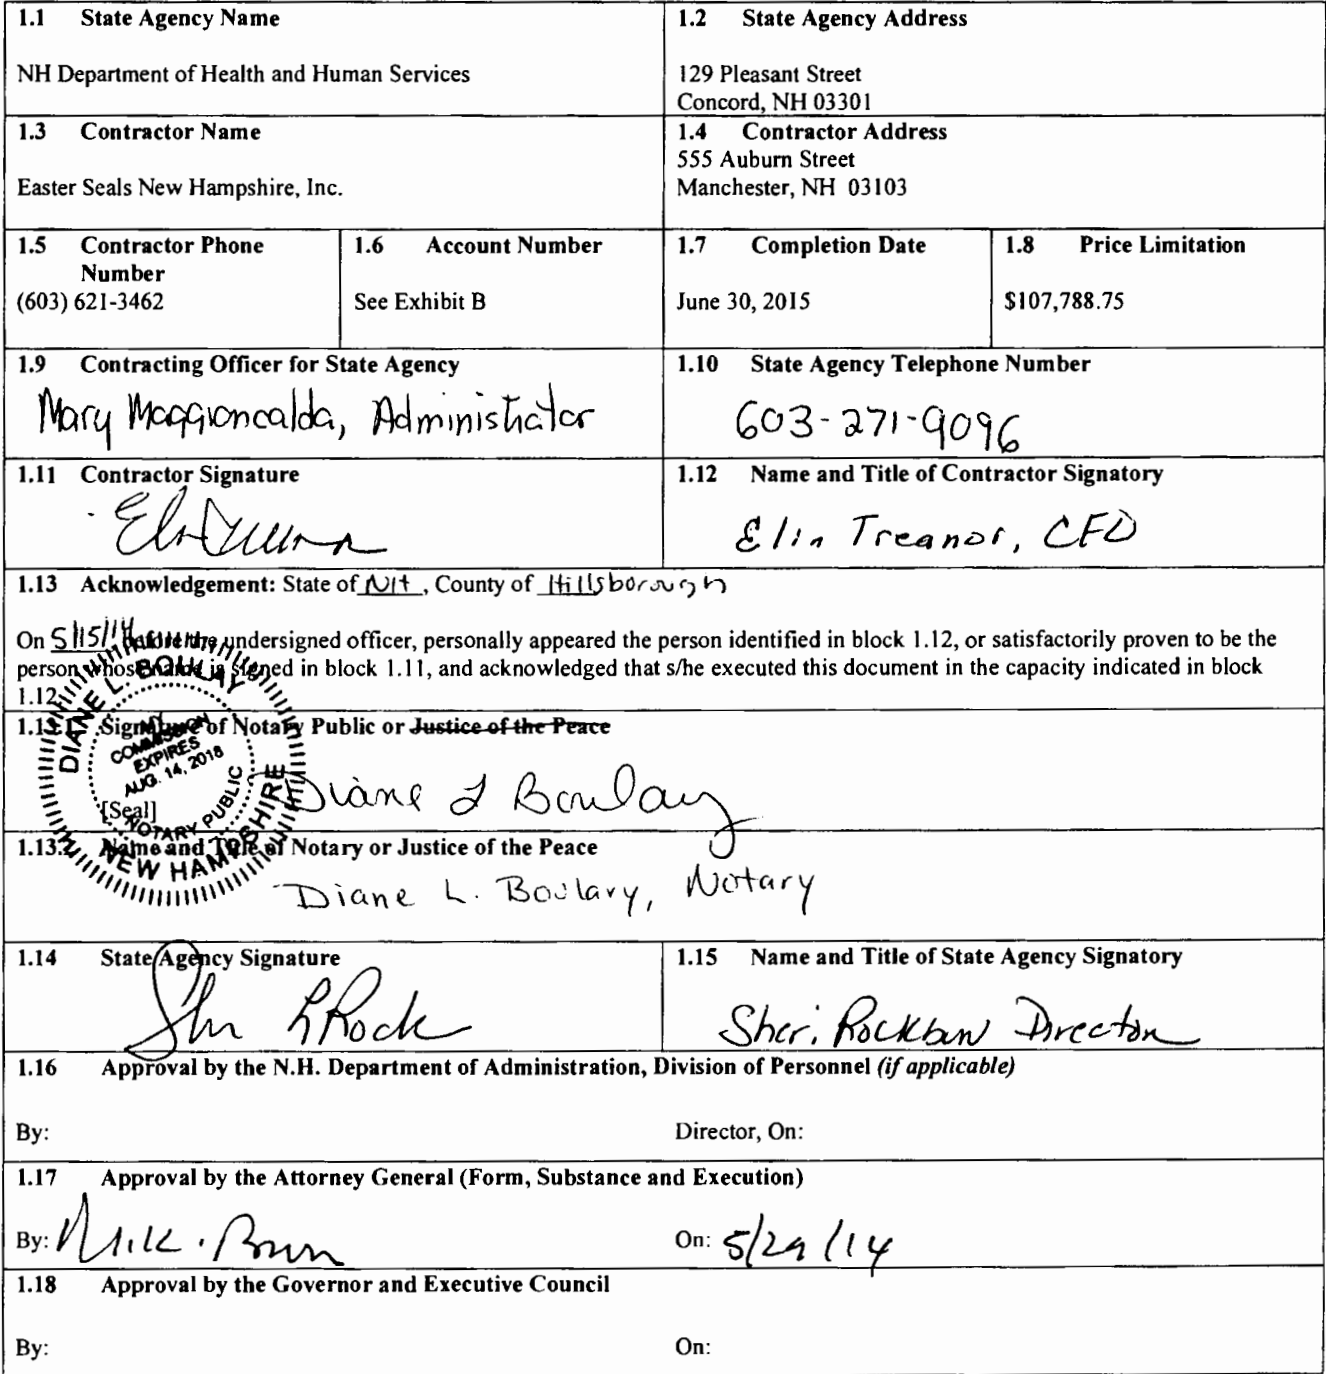 1.1 State Agency Name
NH Department of Health and Human Services
1.2 State Agency Address
129 Pleasant Street
Concord, NH 03301
1.3 Contractor Name
Easter Seals New Hampshire, Inc.
1.4 Contractor Address
555 Auburn Street
Manchester, NH 03103
1.5 Contractor Phone
Number
(603) 621-3462
1.6 Account Number
See Exhibit B
1.7 Completion Date
June 30, 2015
1.8 Price Limitation
$107,788.75
1.9 Contracting Officer for State Agency
Mary Maggioncalda, Administrator
1.10 State Agency Telephone Number
603-271-9096
1.11 Contractor Signature
1.12 Name and Title of Contractor Signatory
Elin Treanor, CFO
1.13 Acknowledgement: State of NH, County of Hillsborough
On 5/15/14 before the undersigned officer, personally appeared the person identified in block 1.12, or satisfactorily proven to be the
person whose name is signed in block 1.11, and acknowledged that s/he executed this document in the capacity indicated in block
1.12.
1.13.1 Signature of Notary Public or Justice of the Peace
Diane L Boulay
[Seal]
DIANE L. BOULAY
MY
COMMISSION
EXPIRES
AUG. 14, 2018
NOTARY PUBLIC
NEW HAMPSHIRE
1.13.2 Name and Title of Notary or Justice of the Peace
Diane L. Boulary, Notary
1.14 State Agency Signature
1.15 Name and Title of State Agency Signatory
Sheri Rockburn Director
1.16 Approval by the N.H. Department of Administration, Division of Personnel (if applicable)
By:
Director, On:
1.17 Approval by the Attorney General (Form, Substance and Execution)
By:
On: 5/29/14
1.18 Approval by the Governor and Executive Council
By:
On: